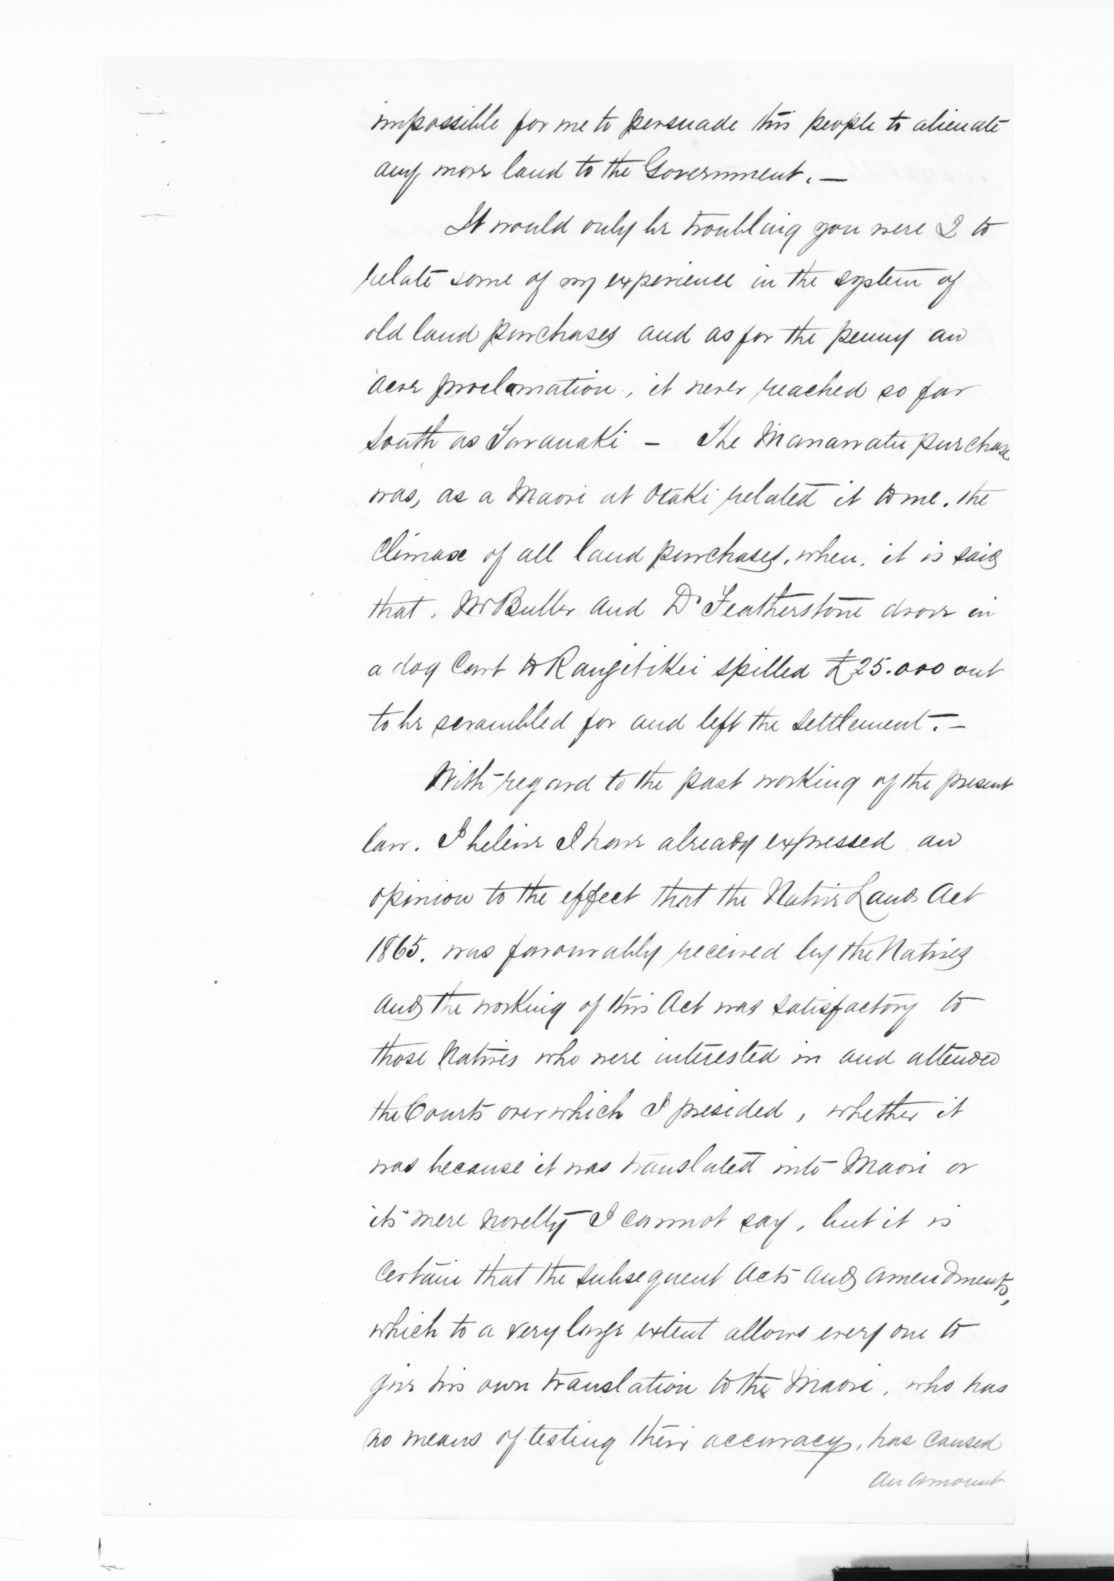 impossible for me to persuade this people to alienate
any more land to the Government. —
It would only be troubling you were I to
relate some of my experience in the system of
old land purchases and as for the penny an
acre proclamation, it never reached so far
South as Taranaki — The Manawatu purchase
was, as a Maori at Otaki related it to me, the
climax of all land purchases, when, it is said
that, Mr Buller and Dr Featherstone drove in
a dog Cart to Rangitikei spilled £25.000 out
to be scrambled for and left the settlement. —
With regard to the past working of the present
law. I believe I have already expressed an
opinion to the effect that the Native Lands Act
1865. was favourably received by the Natives
and the working of this Act was satisfactory to
those Natives who were interested in and attended
the Courts over which I presided, whether it
was because it was translated into Maori or
its mere novelty I cannot say, but it is
certain that the subsequent Acts and amendments,
which to a very large extent allows every one to
give his own translation to the Maori, who has
no means of testing their accuracy, has caused
an amount